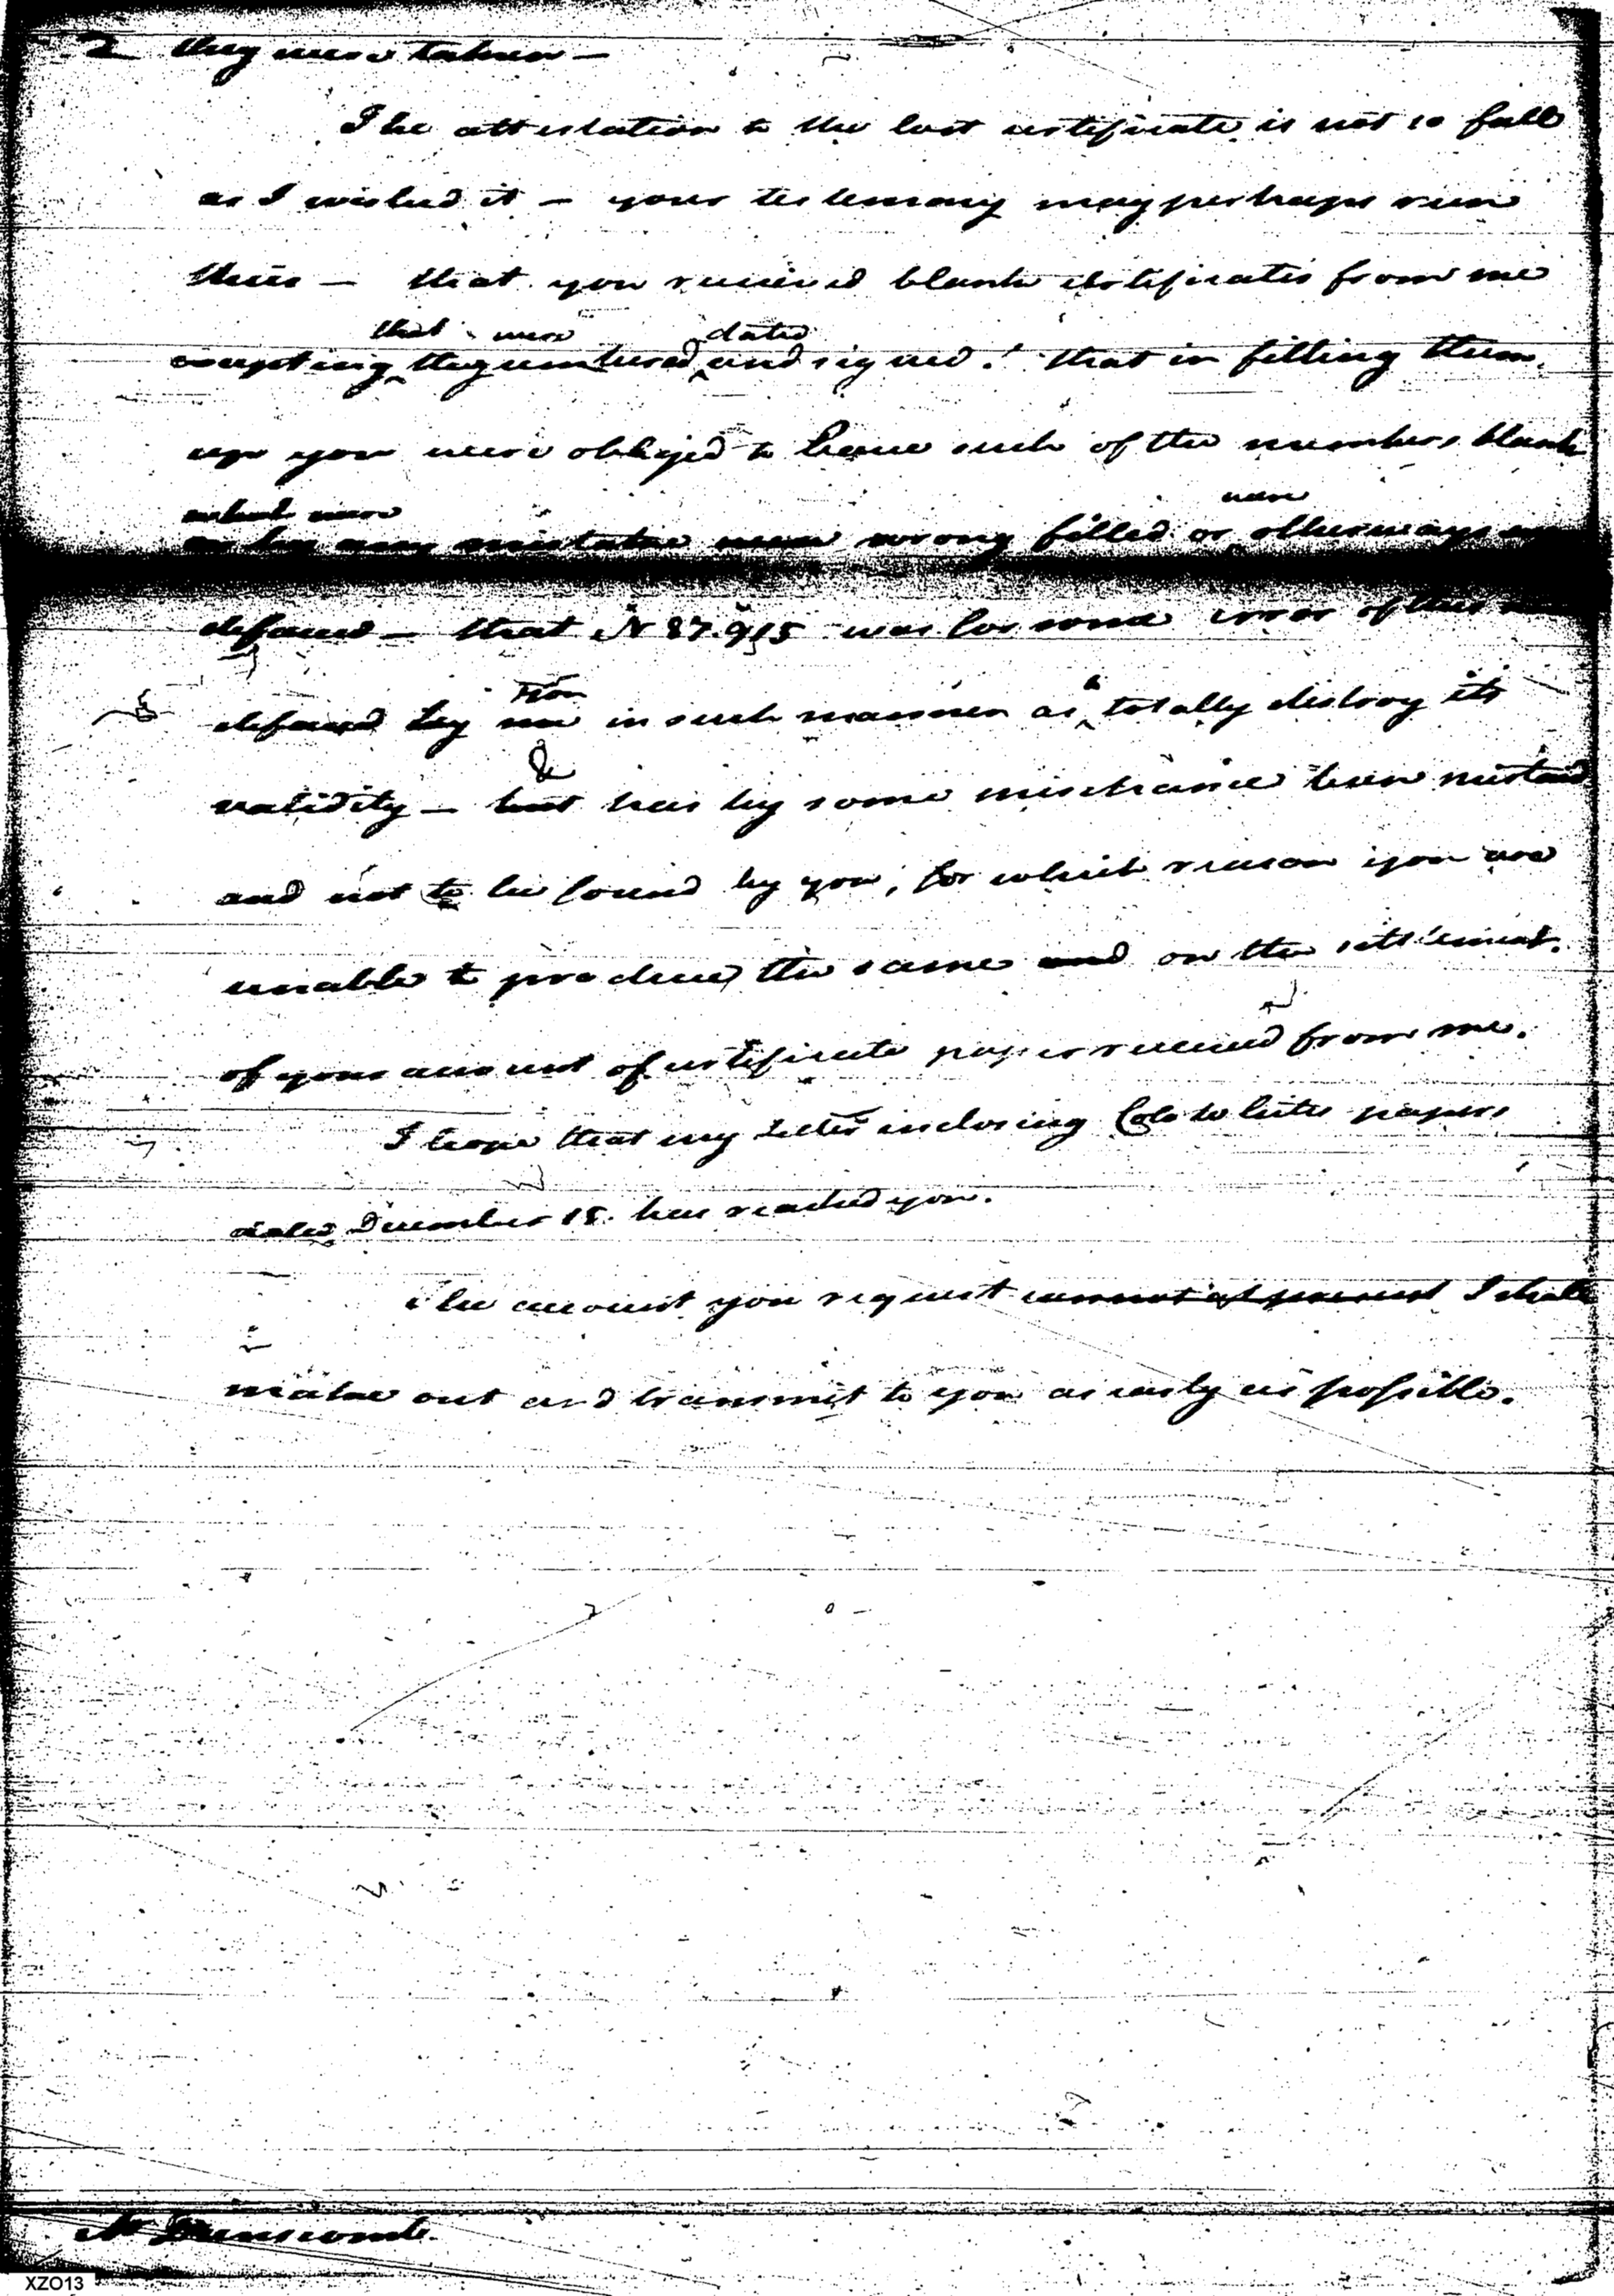 2 they were taken —
The attestation to the lost certificate is not so full
as I wished it — your testemony may perhaps run
thus — that you received blank certificates from me
that were dated
excepting they numbered and signed. that in filling them
up you were obliged to leave such of the numbers blank
which were were
mistake were wrong filled or otherways
defaced — that No 87.915 was for some error of this
you
defaced by me in such manner as totally destroy its
&
validity — but has by some mischance been mislaid
and not to be found by you, for which reason you are
unable to produce the same and on the settlement
of your account of certificate paper received from me.
I hope that my Letter inclosing Colo Whites papers
dated December 15. has reached you.
The account you request cannot at present I shall
make out and transmit to you as early as possible.
Mr Dunscomb.
XZO13